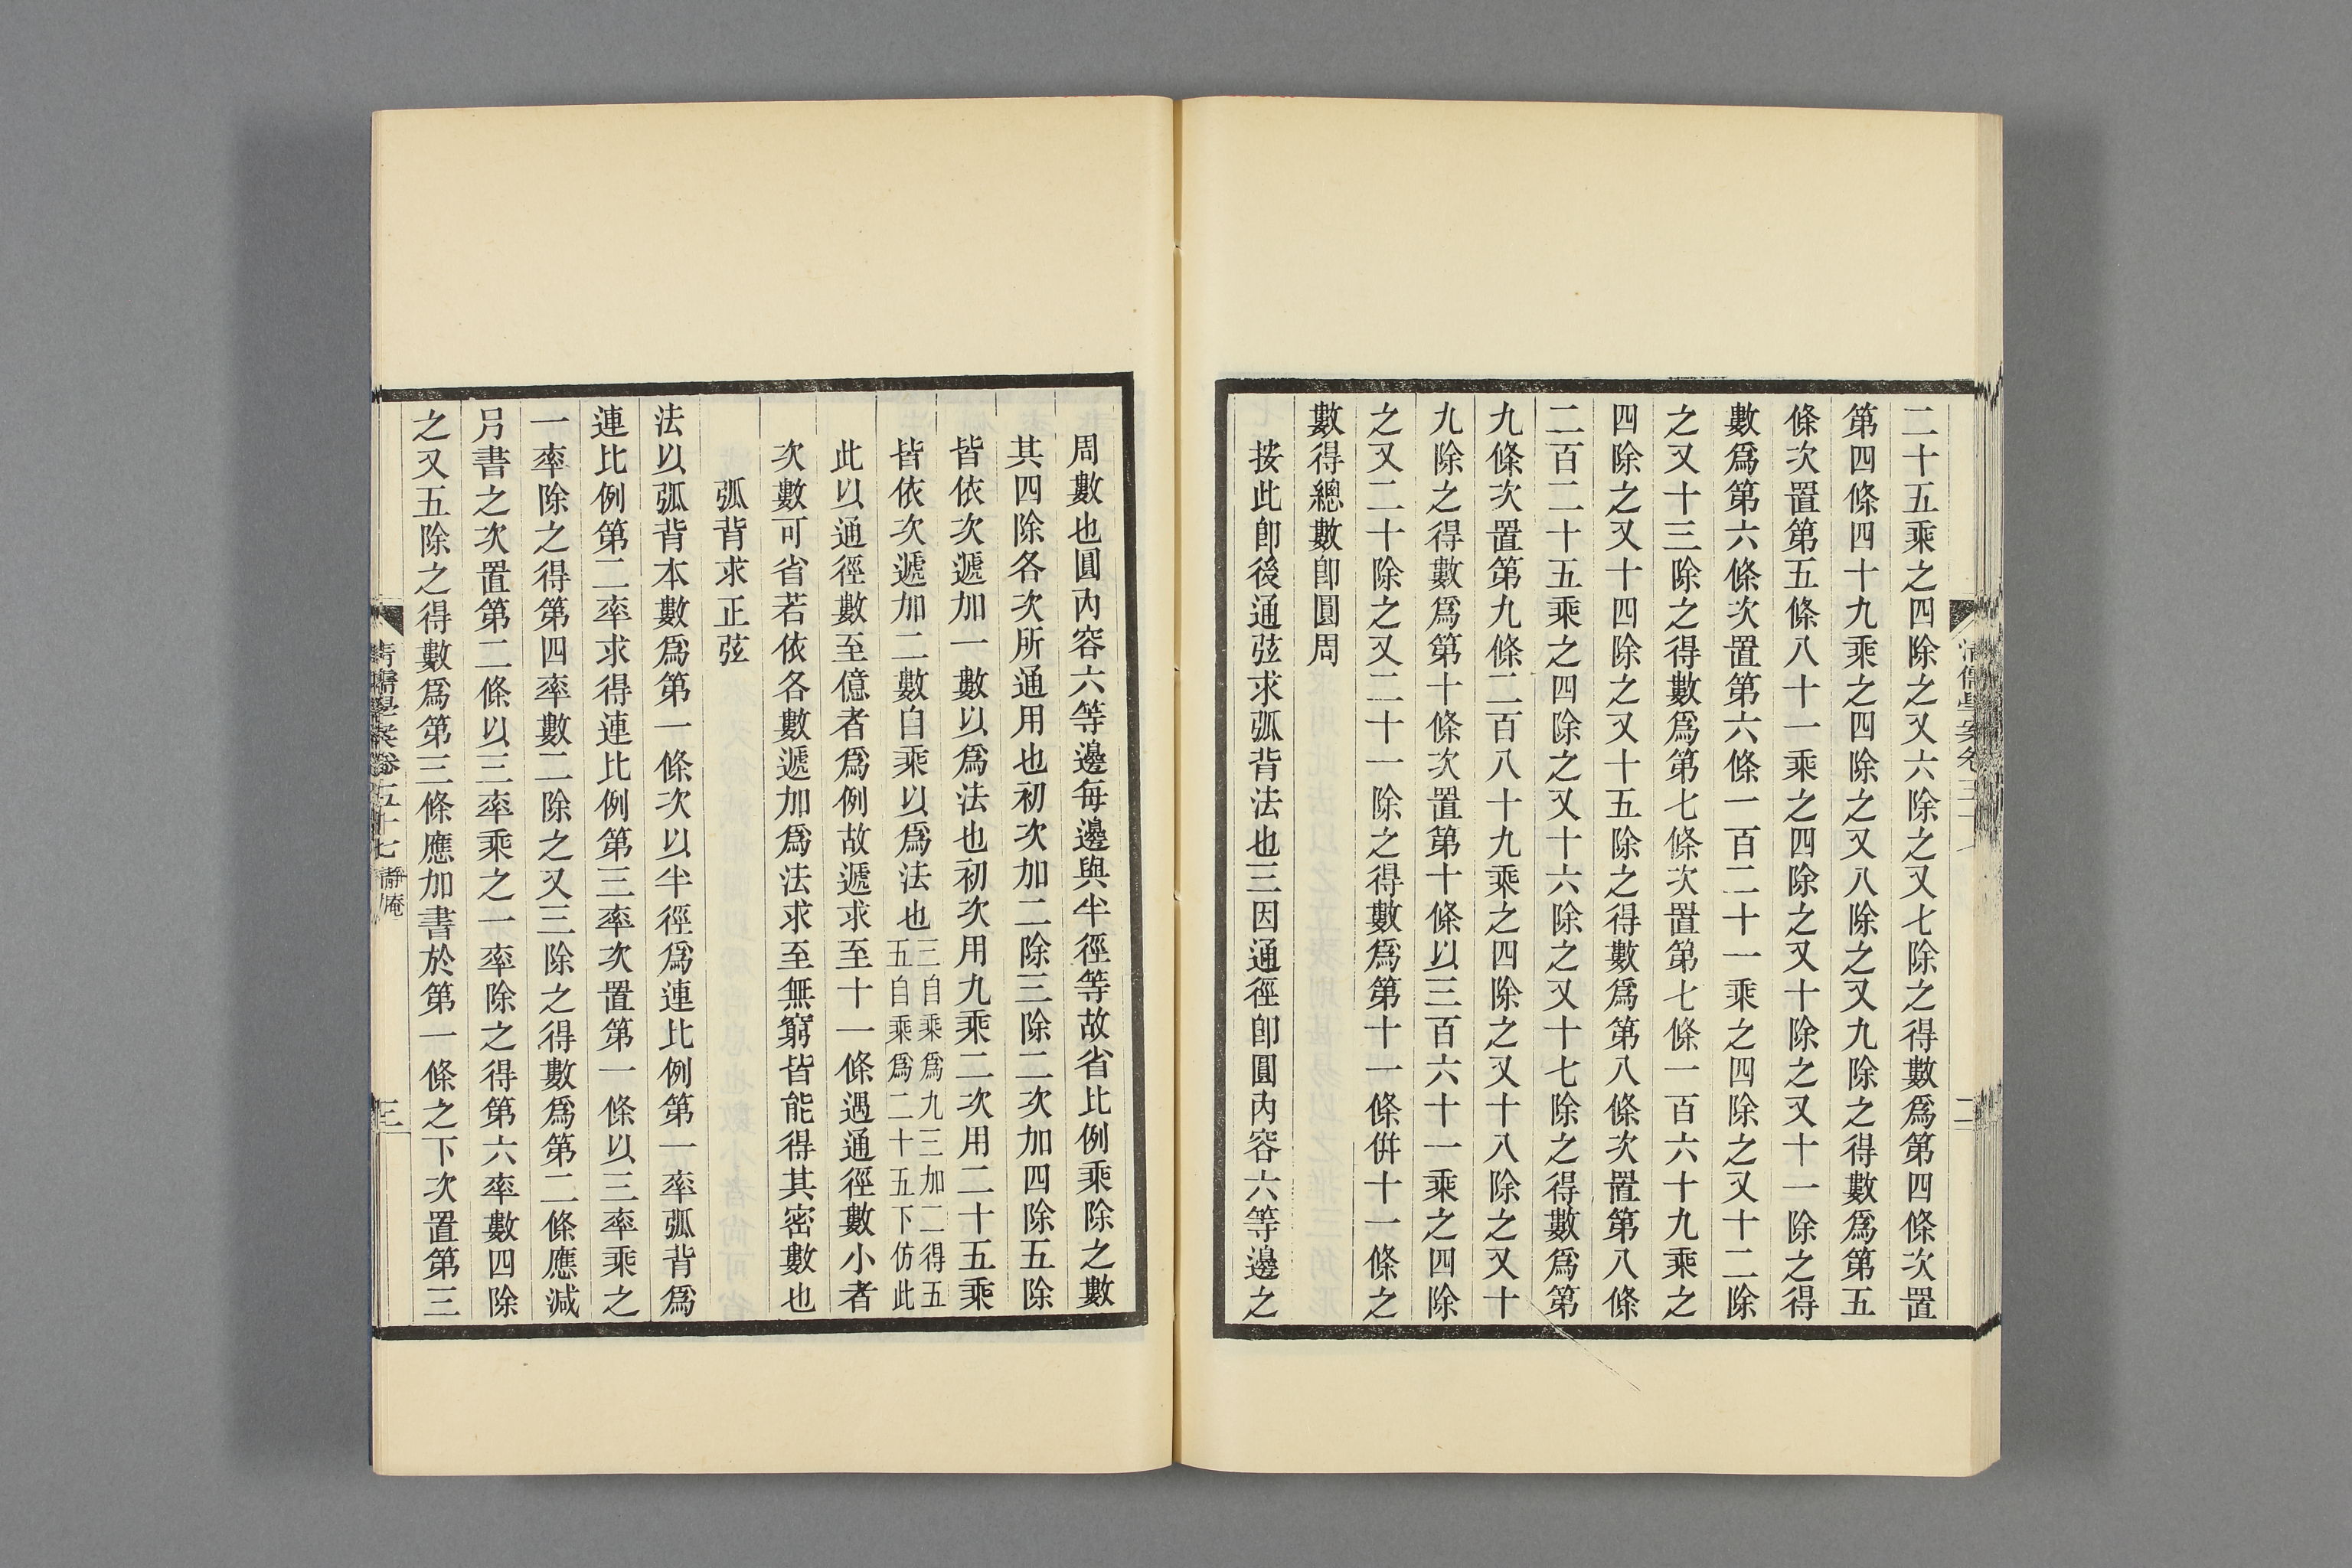 二十五乘之四除之又六除之又七除之得數爲第四條次置
第四條四十九乘之四除之又八除之又九除之得數爲第五
條次置第五條八十一乘之四除之又十除之又十一除之得
數爲第六條次置第六條一百二十一乘之四除之又十二除
之又十三除之得數爲第七條次置第七條一百六十九乘之
四除之又十四除之又十五除之得數爲第八條次置第八條
二百二十五乘之四除之又十六除之又十七除之得數爲第
九條次置第九條二百八十九乘之四除之又十八除之又十
九除之得數爲第十條次置第十條以三百六十一乘之四除
之又二十除之又二十一除之得數爲第十一條併十一條之
數得總數卽圓周
按此卽後通弦求弧背法也三因通徑卽圓內容六等邊之
周數也圓內容六等邊每邊與半徑等故省比例乘除之數
其四除各次所通用也初次加二除三除二次加四除五除
皆依次遞加一數以爲法也初次用九乘二次用二十五乘
皆依次遞加二數自乘以爲法也三自乘爲九三加二得五
五自乘爲二十五下仿此
此以通徑數至億者爲例故遞求至十一條遇通徑數小者
次數可省若依各數遞加爲法求至無窮皆能得其密數也
弧背求正弦
法以弧背本數爲第一條次以半徑爲連比例第一率弧背爲
連比例第二率求得連比例第三率次置第一條以三率乘之
一率除之得第四率數二除之又三除之得數爲第二條應減
另書之次置第二條以三率乘之一率除之得第六率數四除
之又五除之得數爲第三條應加書於第一條之下次置第三
清儒學案卷五十七 靜庵
三